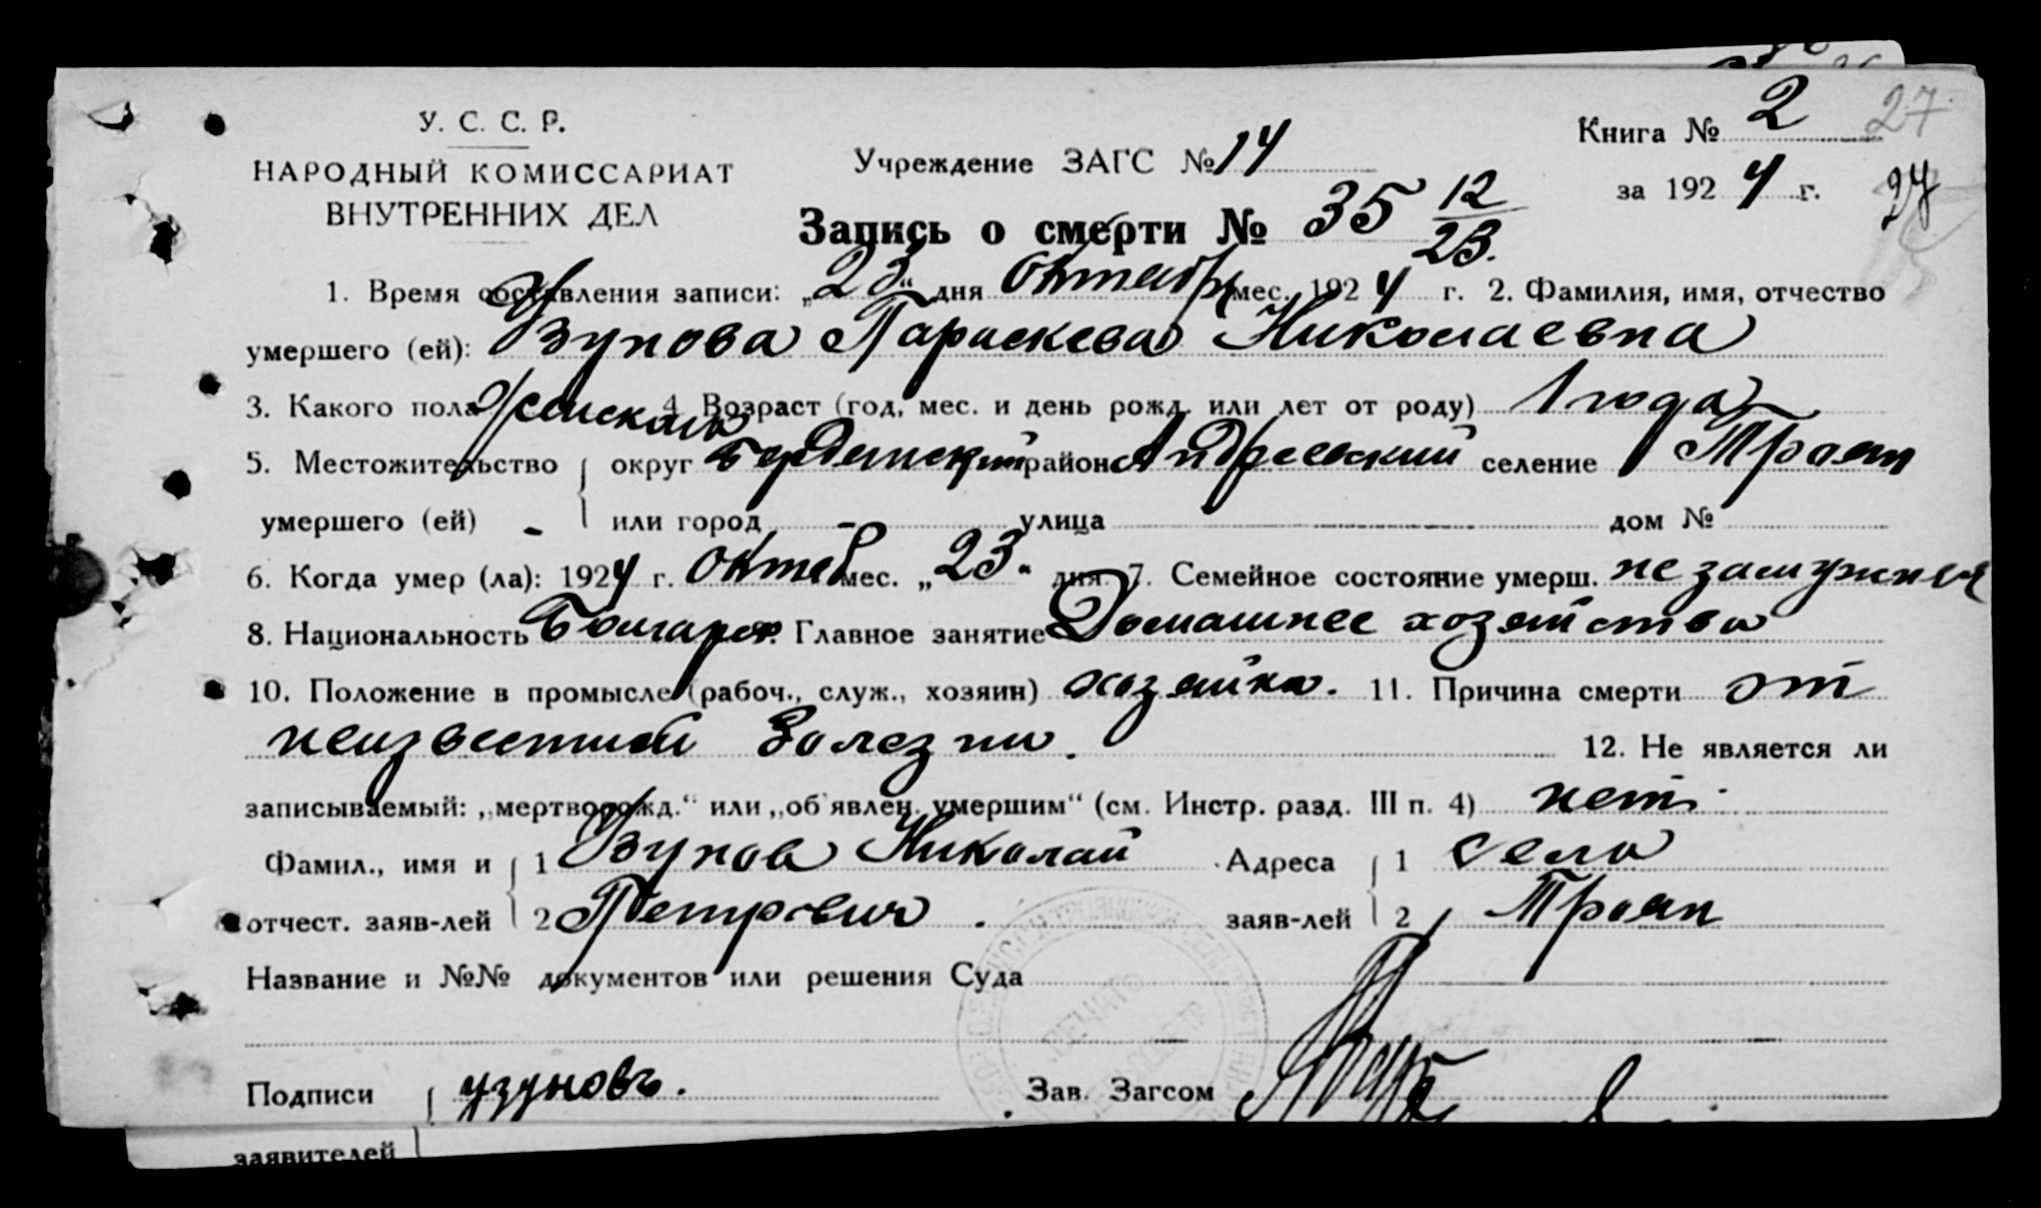 У. С. С. Р.
НАРОДНЫЙ КОМИССАРИАТ
ВНУТРЕННИХ ДЕЛ
Учреждение ЗАГС № 14
Книга № 2 27
за 1924 г. 27
Запись о смерти № 35 12/23.
1. Время составления записи: „23“ дня октября мес. 1924 г. 2. Фамилия, имя, отчество
умершего (ей): Узунова Параскева Николаевна
3. Какого пола женскаго 4. Возраст (год, мес. и день рожд. или лет от роду) 1 года
5. Местожительство округ Бердянский район Андреевский селение Троян
умершего (ей) - или город - улица дом №
6. Когда умер (ла): 1924 г. октяб мес. „23“ дня 7. Семейное состояние умерш. незамужняя
8. Национальность Болгарск. Главное занятие Домашнее хозяйство
10. Положение в промысле (рабоч., служ., хозяин) хозяйка. 11. Причина смерти от
неизвестной болезни. 12. Не является ли
записываемый: „мертворожд.“ или „об'явлен. умершим“ (см. Инстр. разд. III п. 4) нет.
Фамил., имя и 1 Узунов Николай Адреса 1 село
отчест. заяв-лей 2 Петрович. заяв-лей 2 Троян
Название и №№ документов или решения Суда
Подписи узуновъ. Зав. Загсом
заявителей